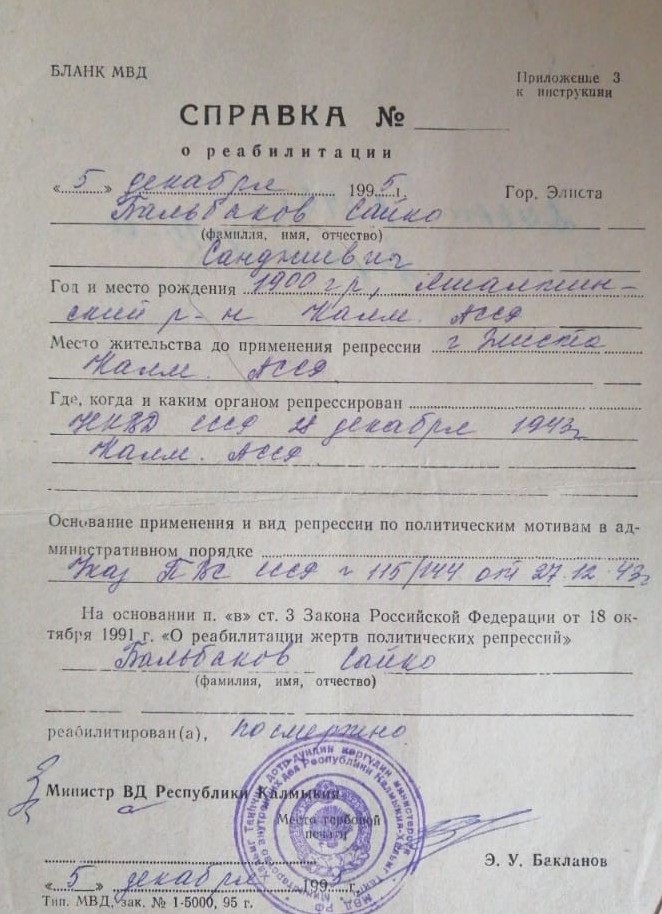 БЛАНК МВД
Приложение 3
к инструкции
СПРАВКА №
о реабилитации
«5» декабря 1995 г. Гор. Элиста
Бальбаков Сайко
(фамилия, имя, отчество)
Санджиевич
Год и место рождения 1900 г р., Яшалтин-
ский р-н Калм. АССР
Место жительства до применения репрессии г Элиста
Калм. АССР
Где, когда и каким органом репрессирован
НКВД СССР 28 декабря 1943г
Калм. АССР
Основание применения и вид репрессии по политическим мотивам в ад-
министративном порядке
Указ ПВС СССР № 115/144 от 27.12.43г
На основании п. «в» ст. 3 Закона Российской Федерации от 18 ок-
тября 1991 г. «О реабилитации жертв политических репрессий»
Бальбаков Сайко
(фамилия, имя, отчество)
реабилитирован(а), посмертно
Министр ВД Республики Калмыкия
Место гербовой
печати
Э. У. Бакланов
«5» декабря 1995 г.
Тип. МВД, зак. № 1-5000, 95 г.